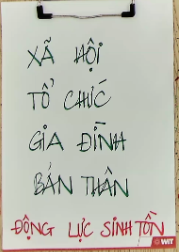 XÃ HỘI
TỔ CHỨC
GIA ĐÌNH
BẢN THÂN
ĐỘNG LỰC SINH TỒN
© WIT